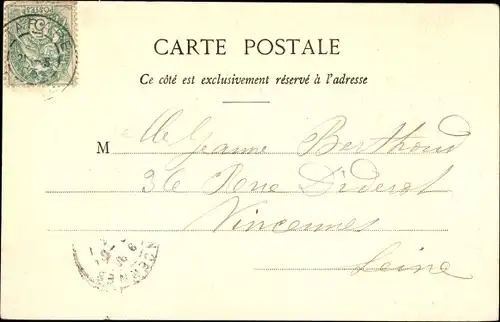 CARTE POSTALE
Ce côté est exclusivement réservé à l'adresse
M lle Jeanne Berthoud
36 Rue Diderot
Vincennes
Seine